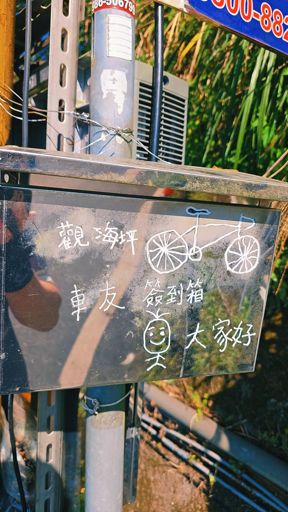 86-50679
000-882
觀海坪
車友 簽到箱
大家好